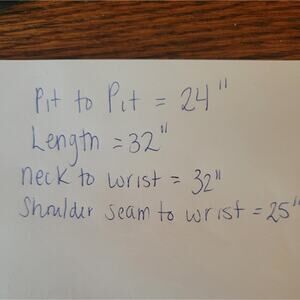 Pit to Pit = 24"
Length = 32"
neck to wrist = 32"
Shoulder seam to wrist = 25"